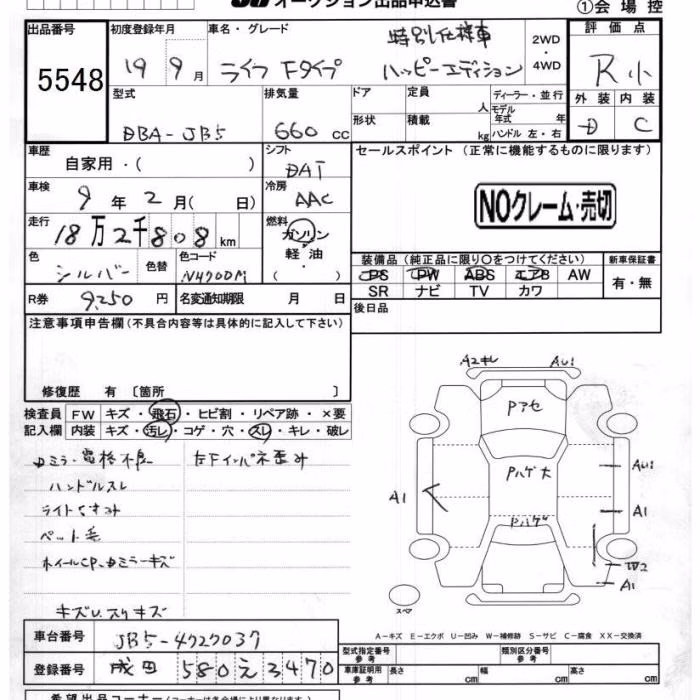 オークション出品申込書
①会場控
出品番号 5548
初度登録年月 19 9月
車名・グレード ライフ Fタイプ 特別仕様車 ハッピーエディション
2WD・4WD
評価点 R小
外装 D 内装 C
型式 DBA-JB5
排気量 660 cc
ドア 形状
定員 人 積載 kg
ディーラー・並行
モデル年式 年
ハンドル 左・右
車歴 自家用・( )
シフト DAT
セールスポイント (正常に機能するものに限ります)
NOクレーム・売切
車検 9年2月( 日)
冷房 AAC
走行 18万2千808 km
燃料 ガソリン・軽油・
色 シルバー 色替
色コード NH700M
装備品 (純正品に限り○をつけてください)
PS PW ABS エアB AW
SR ナビ TV カワ
新車保証書 有・無
R券 9,250 円
名変通知期限 月 日
後日品
注意事項申告欄 (不具合内容等は具体的に記入して下さい)
修復歴 有 〔箇所 〕
検査員記入欄
FW キズ・飛石・ヒビ割・リペア跡・×要
内装 キズ・汚レ・コゲ・穴・スレ・キレ・破レ
ミラー電格不良
左Fインパネ歪み
ハンドルスレ
ライトくすみ
ペット毛
ホイールCP、ミラーキズ
キズU スリキズ
A2キレ AU1
Pアセ
Pハゲ大
Pハゲ
A1
AU1
A1
W2
A1
スペア
A-キズ E-エクボ U-凹み W-補修跡 S-サビ C-腐食 XX-交換済
車台番号 JB5-4727037
型式指定番号 参考
類別区分番号 参考
登録番号 成田 580 え 3470
車庫証明用 参考 長さ cm 幅 cm 高さ cm
希望出品コーナー